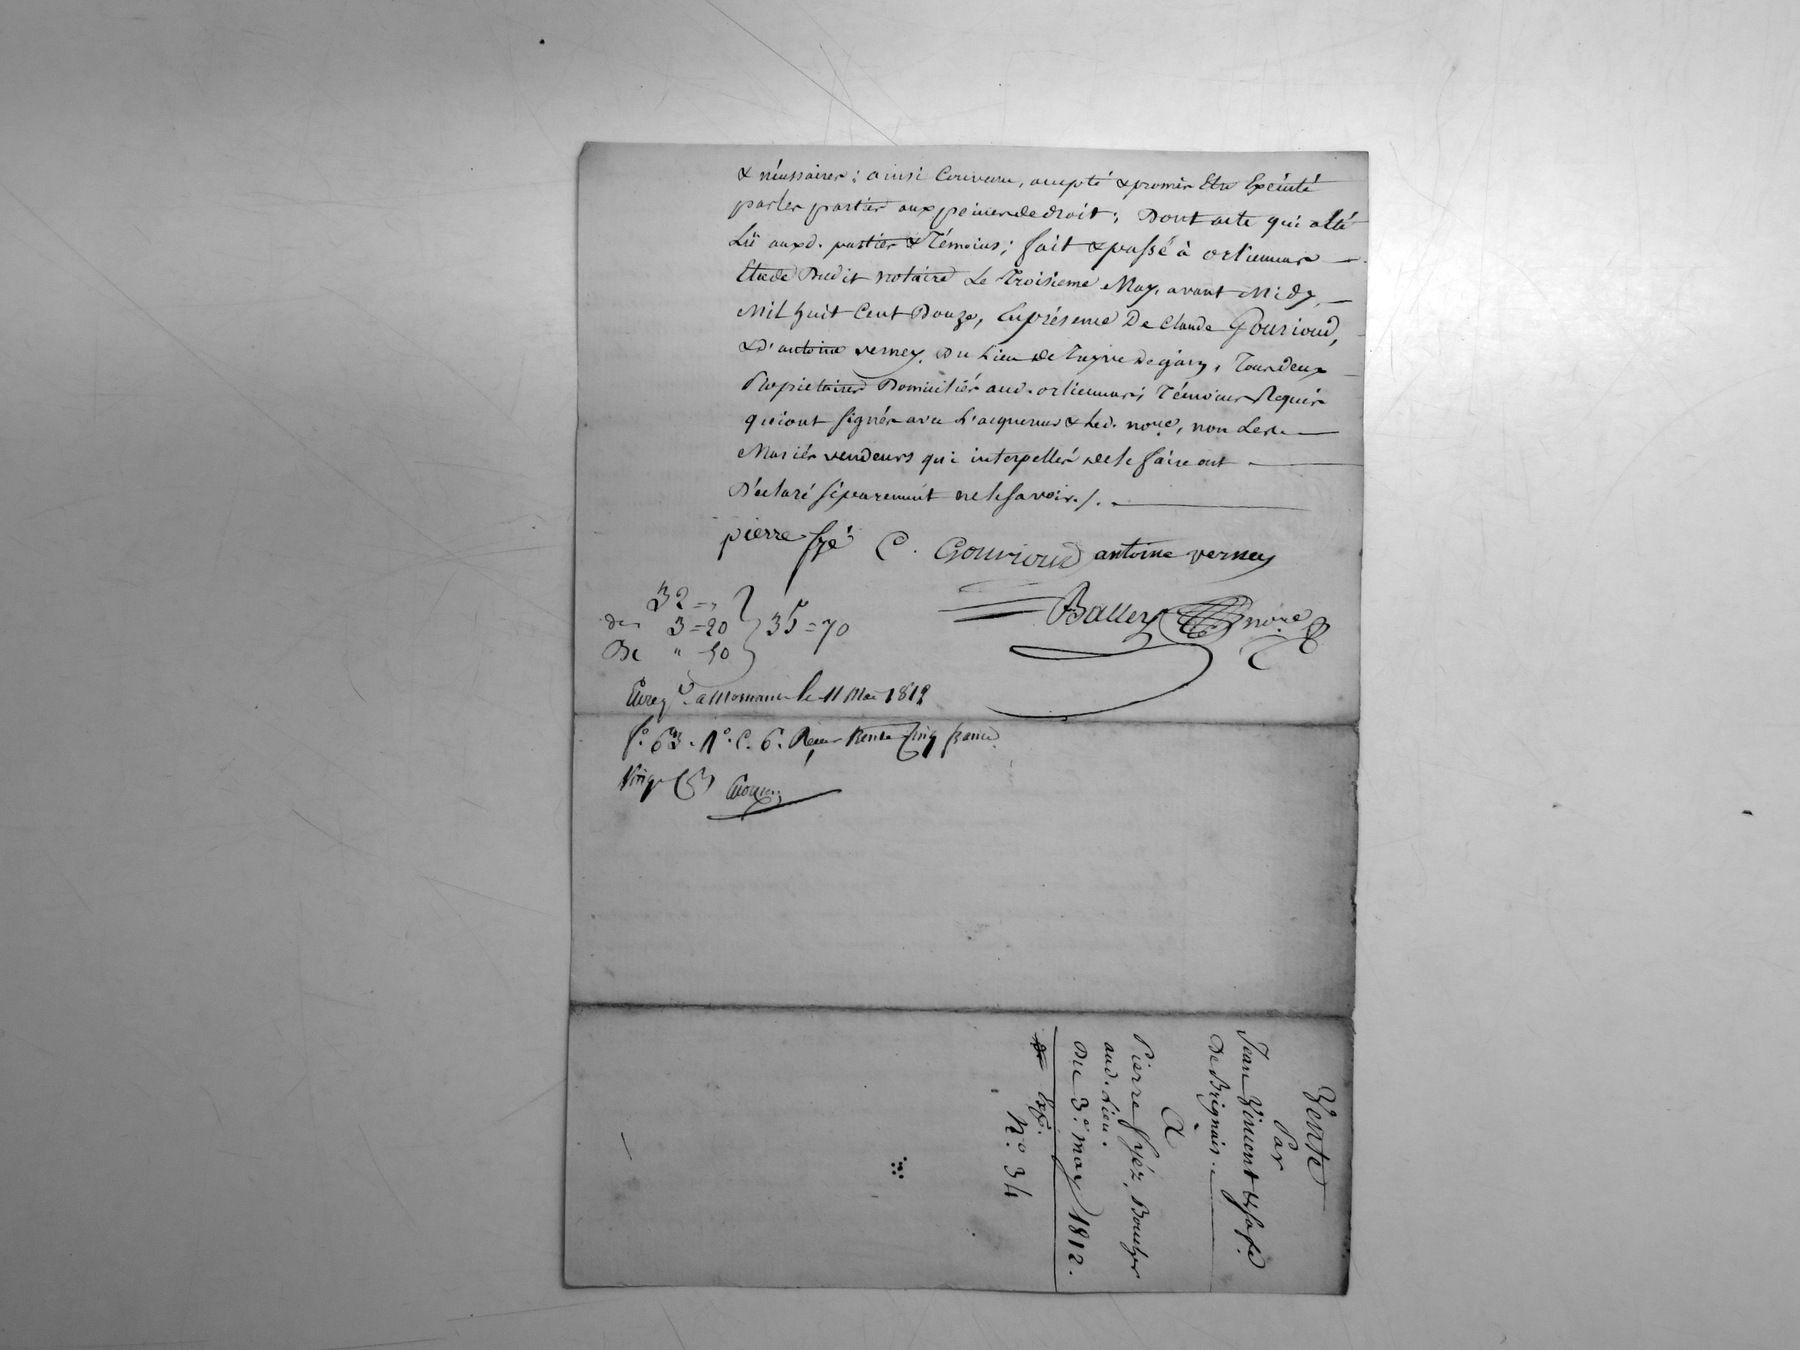 & nécessaires; ainsi Convenu, accepté & promis Etre Exécuté
par les parties aux peines de droit; Dont acte qui a été
Lû auxd. parties & Témoins; fait & passé à orliennas
Etude Dudit notaire Le Troisieme May, avant Midy,
Mil huit Cent Douze, En présence De Claude Gourioud,
& D'antoine verney, Du Lieu de, Tous deux
Propriétaires Domiciliés aud. orliennas; Témoins Requis
qui ont signés avec L'acquereur & Led. nore, non Les
Mariés vendeurs qui interpellés de le faire ont
Déclaré séparement ne le savoir./.
pierre fyé C. Gourioud antoine verney
Balley nore
32 = "
3 = 20
35 = 70
De " 50
Enreg.é a Mornant le 11 Mai 1812
f.o 63. V.o C. 6. Reçu trente Cinq francs
Vente
Par
Jean Vincent & sa fe.
De Brignais.
A
Pierre fyéz, Boucher
aud. Lieu.
Du 3.e may 1812.
Exp.
N.o 34